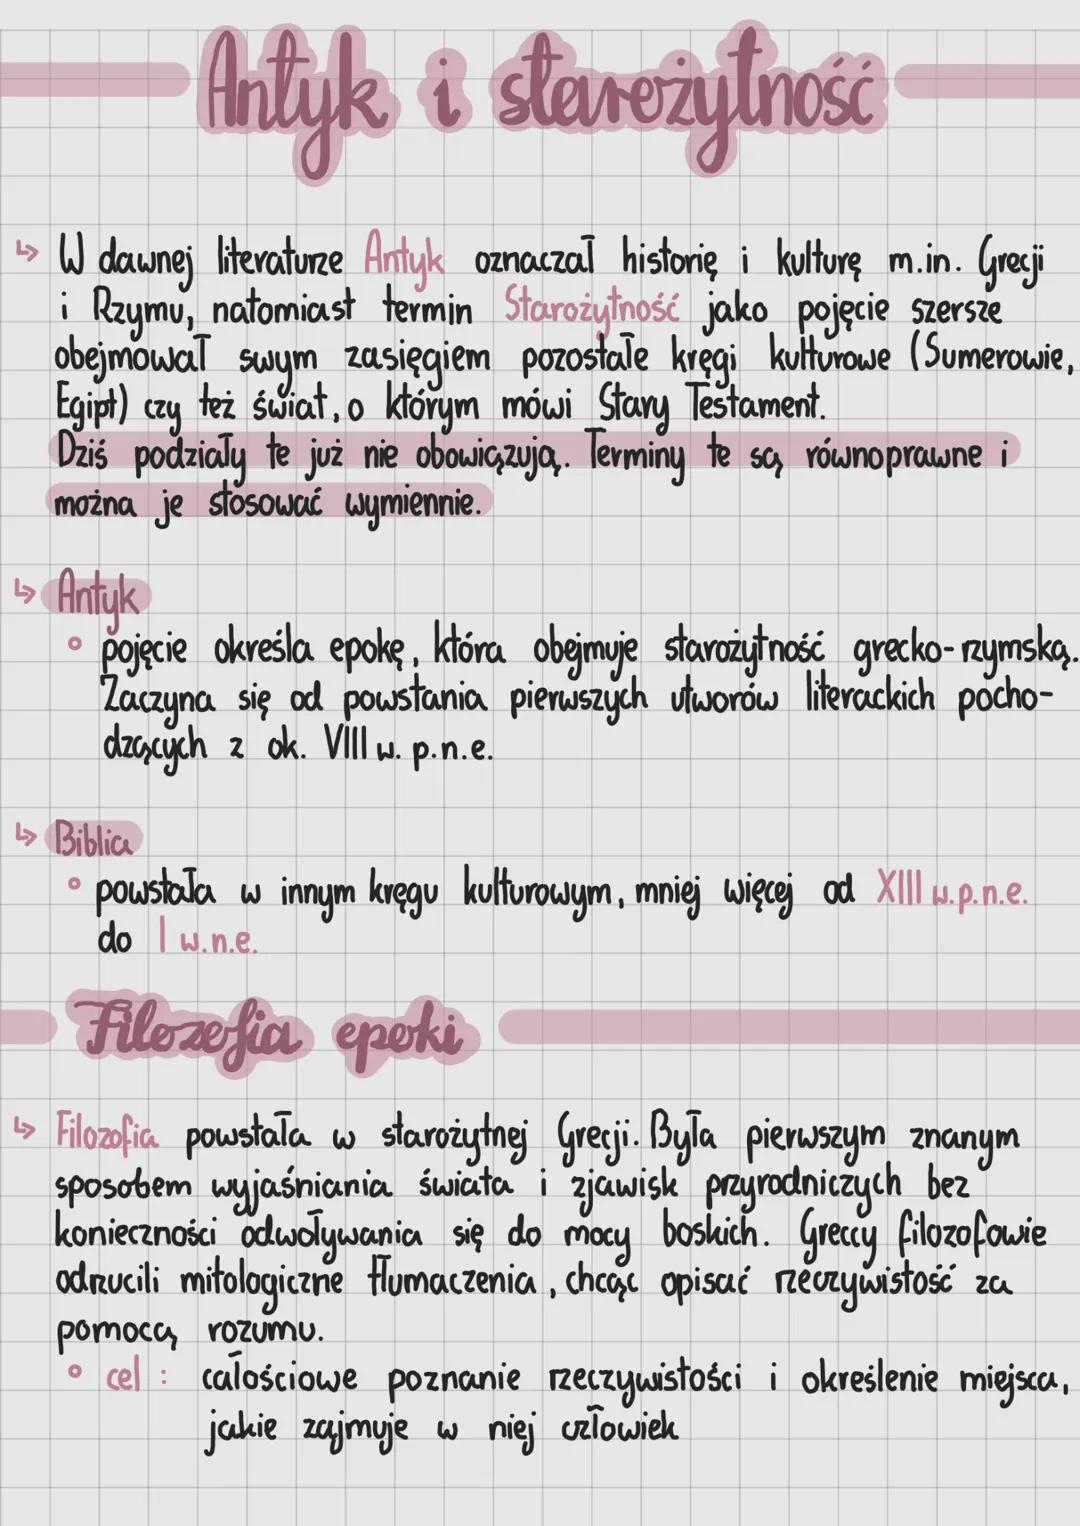 Antyk i starożytność
↳ W dawnej literaturze Antyk oznaczał historię i kulturę m.in. Grecji
i Rzymu, natomiast termin Starożytność jako pojęcie szersze
obejmował swym zasięgiem pozostałe kręgi kulturowe (Sumerowie,
Egipt) czy też świat, o którym mówi Stary Testament.
Dziś podziały te już nie obowiązują. Terminy te są równoprawne i
można je stosować wymiennie.
↳ Antyk
° pojęcie określa epokę, która obejmuje starożytność grecko-rzymską.
Zaczyna się od powstania pierwszych utworów literackich pocho-
dzących z ok. VIII w. p.n.e.
↳ Biblia
° powstała w innym kręgu kulturowym, mniej więcej od XIII w.p.n.e.
do I w.n.e.
Filozofia epoki
↳ Filozofia powstała w starożytnej Grecji. Była pierwszym znanym
sposobem wyjaśniania świata i zjawisk przyrodniczych bez
konieczności odwoływania się do mocy boskich. Greccy filozofowie
odrzucili mitologiczne tłumaczenia, chcąc opisać rzeczywistość za
pomocą rozumu.
° cel: całościowe poznanie rzeczywistości i określenie miejsca,
jakie zajmuje w niej człowiek